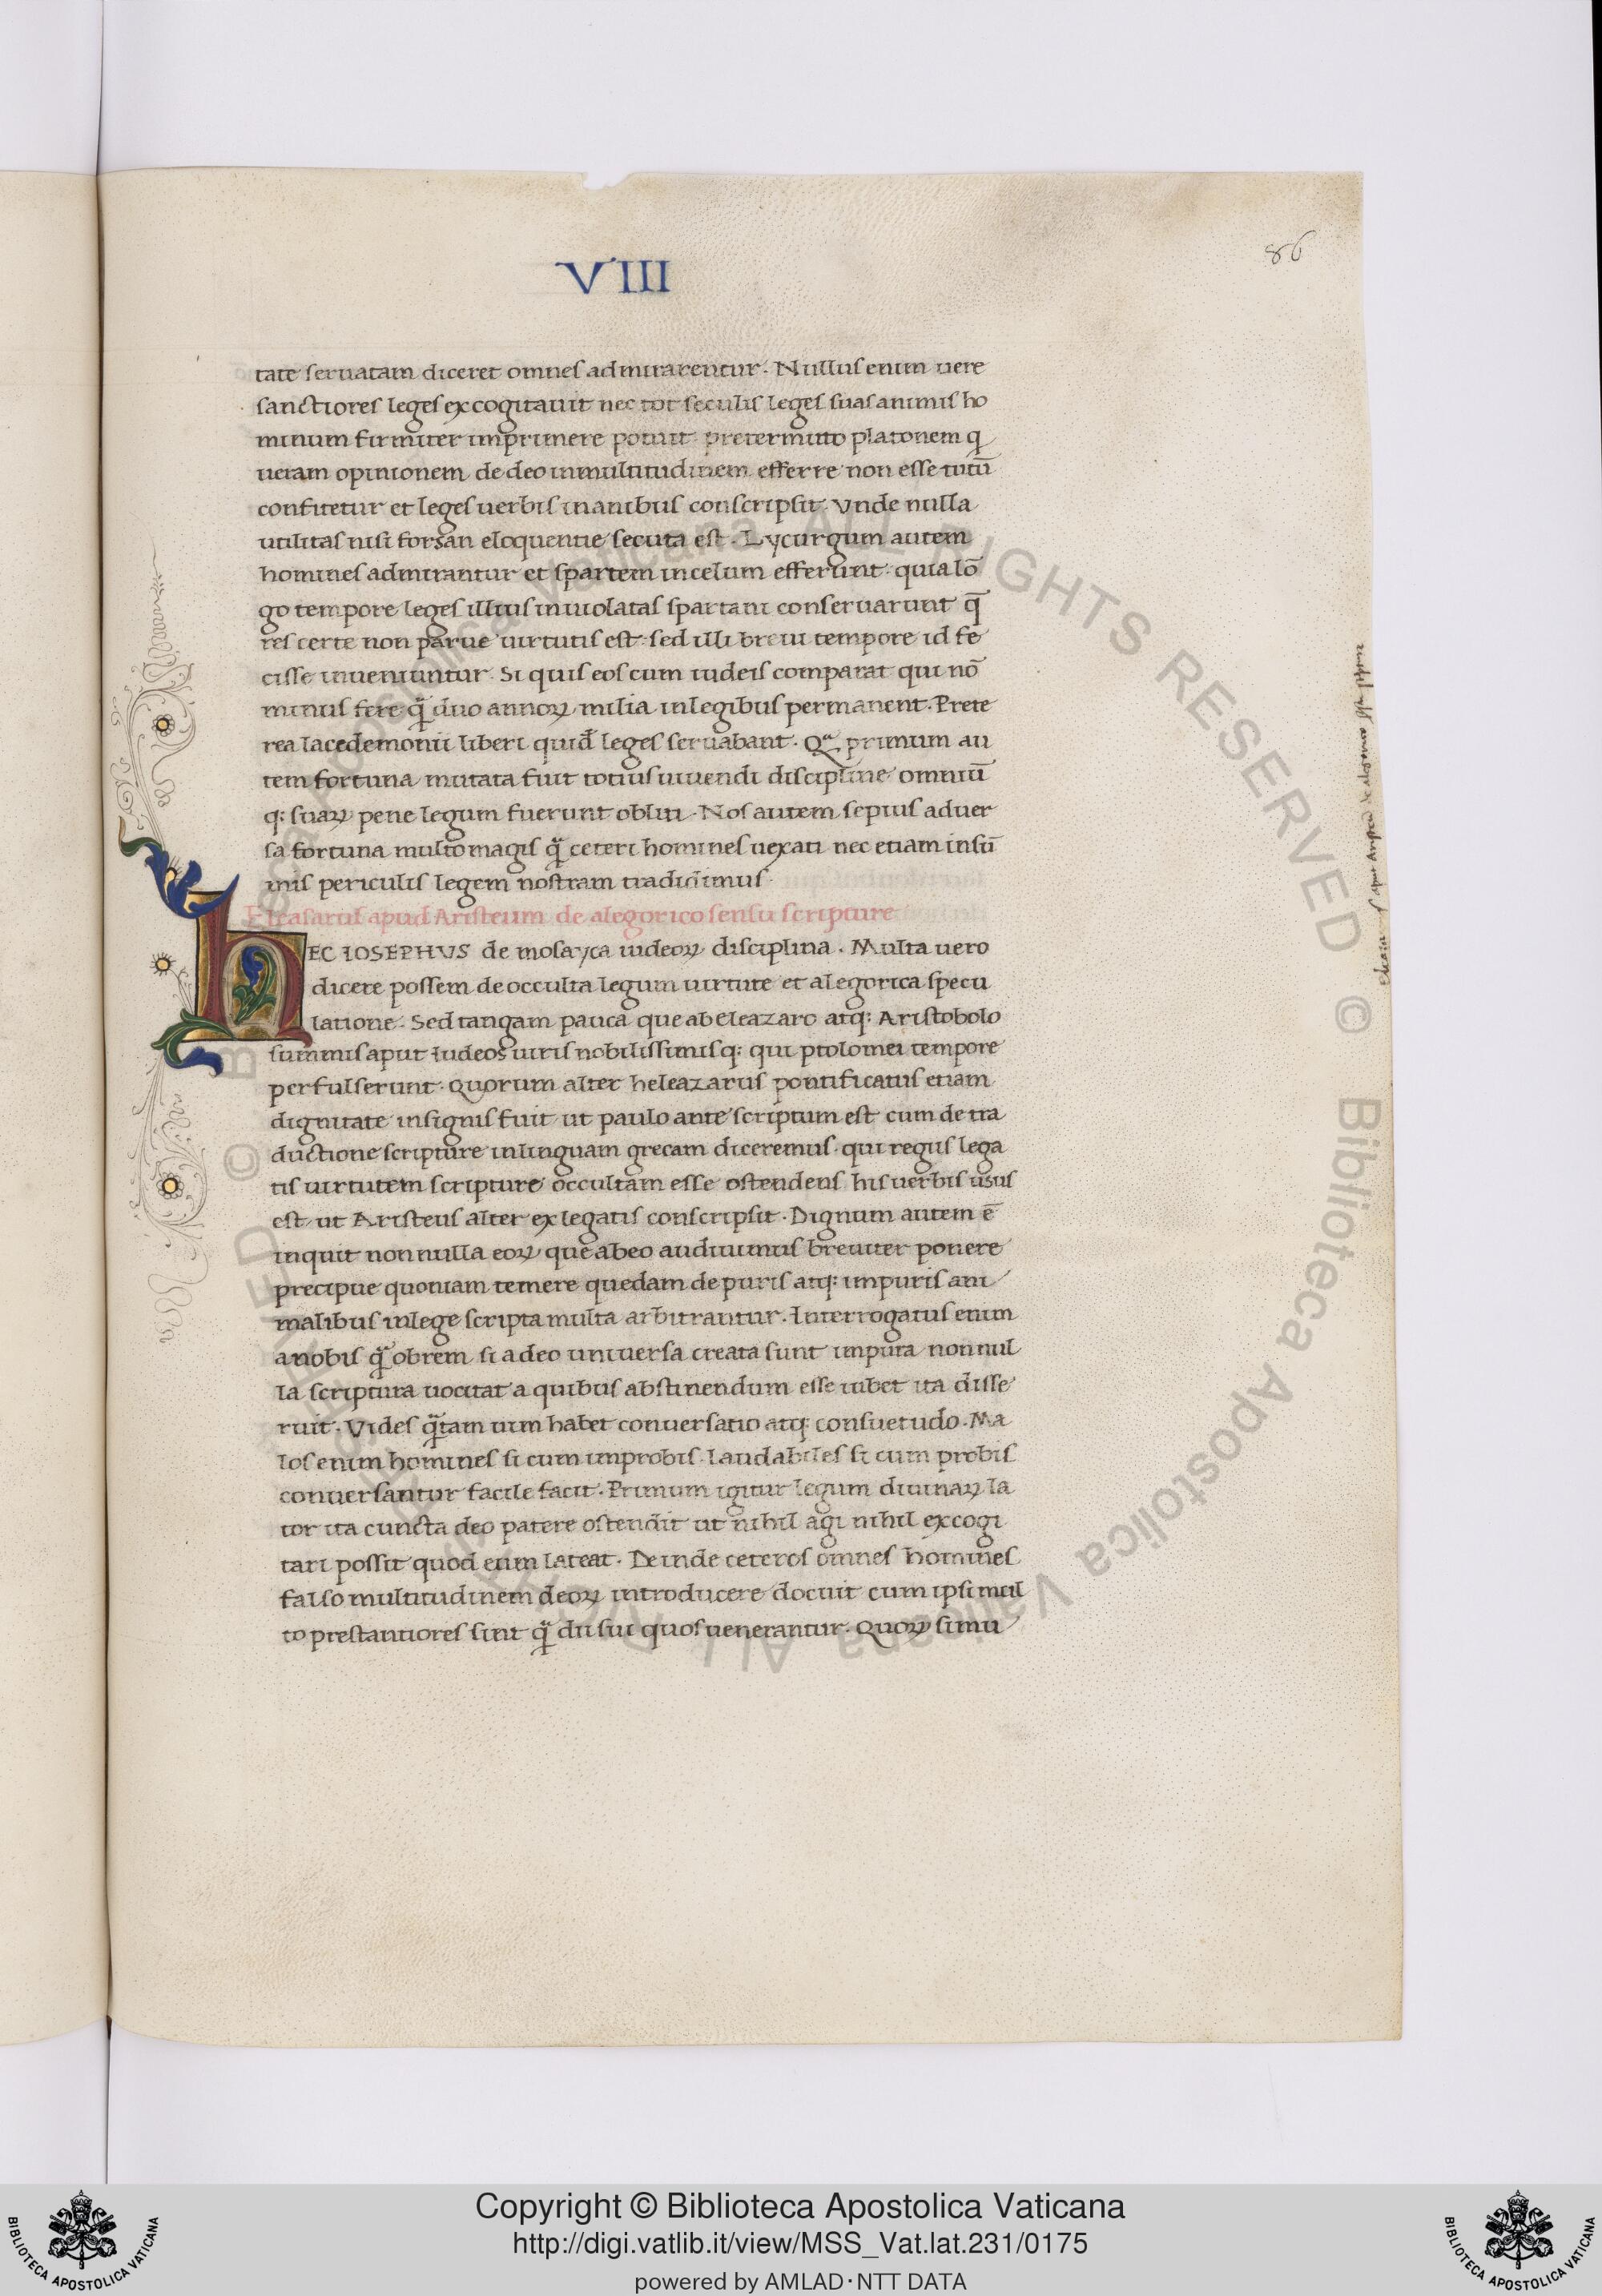 VIII
86
tate seruatam diceret omnes admirarentur. Nullus enim uere
sanctiores leges excogitauit nec tot seculis leges suas animis ho
minum firmiter imprimere potuit. pretermitto platonem q
ueram opinionem de deo in multitudinem efferre non esse tutū
confitetur et leges uerbis inanibus conscripsit. Vnde nulla
utilitas nisi forsan eloquentie secuta est. Lycurgum autem
homines admirantur et spartem in celum efferunt. quia lō
go tempore leges illius inuiolatas spartani conseruarunt q̄
res certe non parue uirtutis est. sed illi breui tempore id fe
cisse inueniuntur. Si quis eos cum iudeis comparat qui nō
minus fere q̈ duo annoꝝ milia in legibus permanent. Prete
rea lacedemonii liberi quid̄ leges seruabant. Qͣ primum au
tem fortuna mutata fuit totius uiuendi discipline omniū
q: suaꝝ pene legum fuerunt obliti. Nos autem sepius aduer
sa fortuna multo magis q̈ ceteri homines uexati nec etiam in sū
mis periculis legem nostram tradidimus
Eleasarus apud Aristeum de alegorico sensu scripture
HEC IOSEPHVS de mosayca iudeoꝝ disciplina. Multa uero
dicere possem de occulta legum uirtute et alegorica specu
latione. Sed tangam pauca que ab eleazaro atq: Aristobolo
summis aput Iudeos uiris nobilissimisq: qui ptolomei tempore
perfulserunt. Quorum alter heleazarus pontificatus etiam
dignitate insignis fuit ut paulo ante scriptum est cum de tra
ductione scripture in linguam grecam diceremus. qui regiis lega
tis uirtutem scripture occultam esse ostendens his uerbis usus
est ut Aristeus alter ex legatis conscripsit. Dignum autem ē
inquit non nulla eoꝝ que ab eo audiuimus breuiter ponere
precipue quoniam temere quedam de puris atq: impuris ani
malibus in lege scripta multa arbitrantur. Interrogatus enim
a nobis q̈ obrem si a deo uniuersa creata sunt impura non nul
la scriptura uocitat a quibus abstinendum esse iubet ita disse
ruit. Vides q̈tam uim habet conuersatio atq: consuetudo. Ma
los enim homines si cum improbis. laudabiles si cum probis
conuersantur facile facit. Primum igitur legum diuinaꝝ la
tor ita cuncta deo patere ostendit ut nihil agi nihil excogi
tari possit quod eum lateat. Deinde ceteros omnes homines
falso multitudinem deoꝝ introducere docuit cum ipsi mul
to prestantiores sint q̈ dii sui quos uenerantur. Quoꝝ simu
© Biblioteca Apostolica Vaticana ALL RIGHTS RESERVED
BIBLIOTECA APOSTOLICA VATICANA
Copyright © Biblioteca Apostolica Vaticana
http://digi.vatlib.it/view/MSS_Vat.lat.231/0175
powered by AMLAD·NTT DATA
BIBLIOTECA APOSTOLICA VATICANA